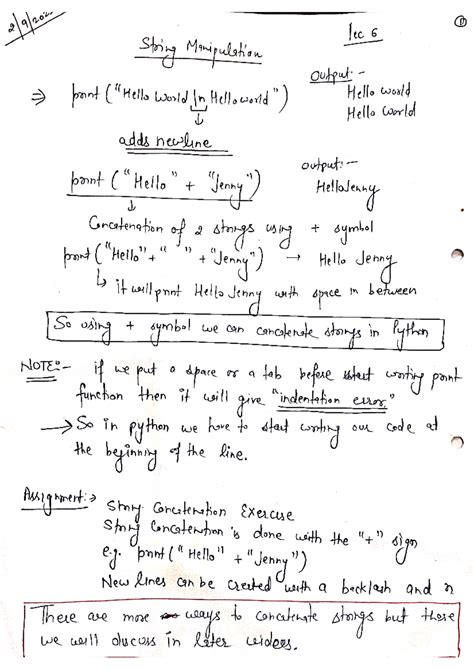 2/9/202
lec 6
①
String Manipulation
Output:-
⇒ print ("Hello World \n Hello world")
Hello world
Hello World
↓
adds newline
output:-
print ("Hello" + "Jenny")
HelloJenny
↓
Concatenation of 2 strings using + symbol
print ("Hello" + " " + "Jenny") → Hello Jenny
↳ it will print Hello Jenny with space in between
So using + symbol we can concatenate strings in Python
NOTE:- if we put a space or a tab before start writing print
function then it will give "indentation error"
→ So in python we have to start writing our code at
the beginning of the line.
Assignment:→
String Concatenation Exercise
String Concatenation is done with the "+" sign
e.g. print ("Hello" + "Jenny")
New lines can be created with a backlash and n
There are more ways to concatenate strings but those
we will discuss in later videos.